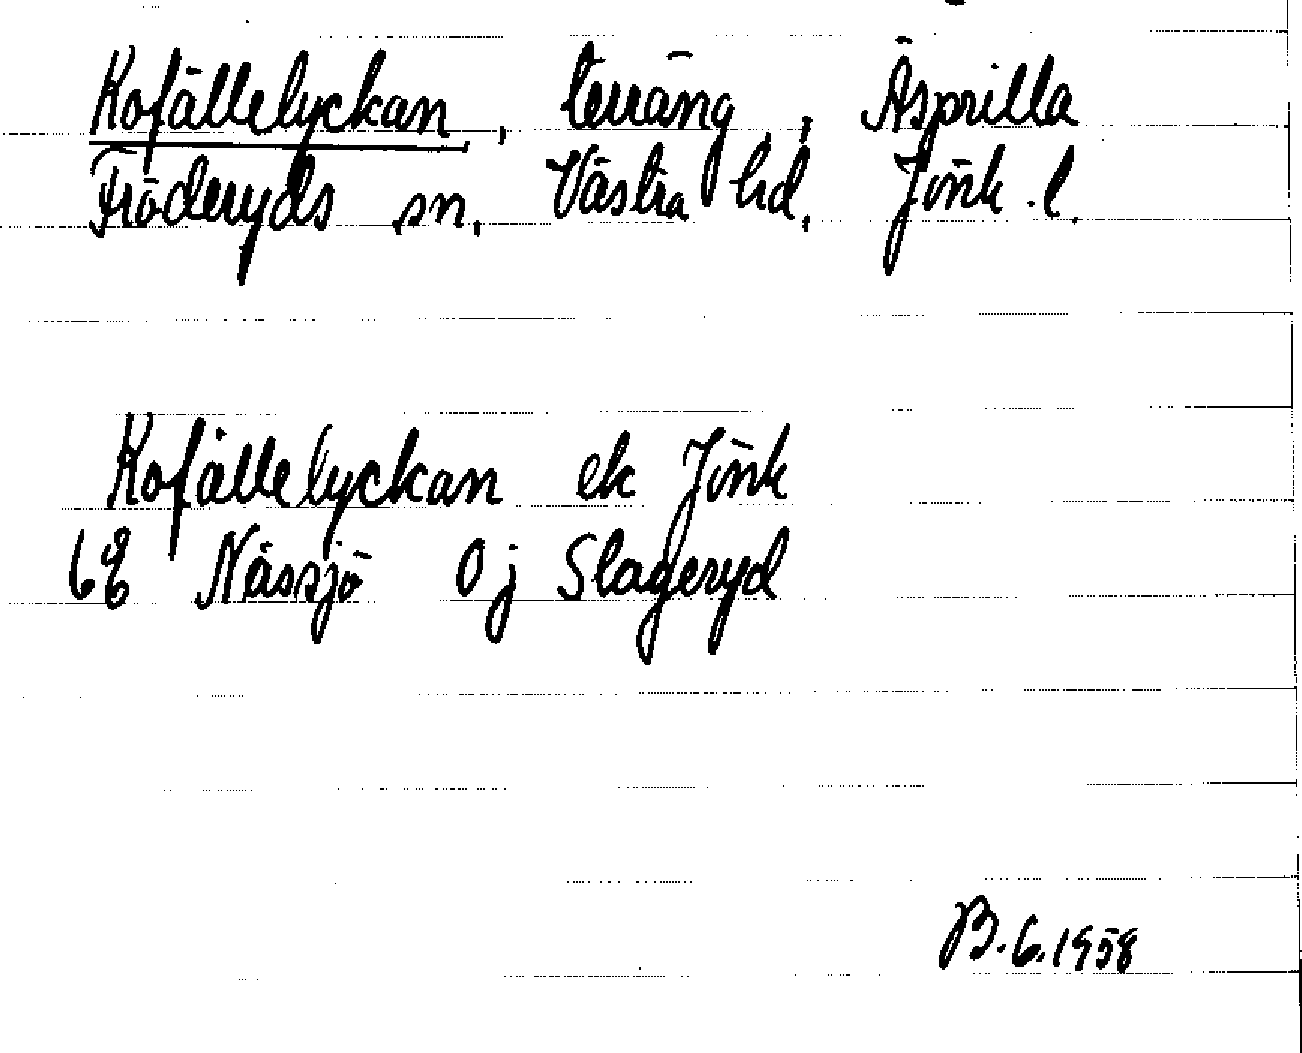 Kofällelyckan, terräng, Äsprilla
Fröderyds sn, Västra hd, Jönk. l.
Kofällelyckan ek Jönk
6E Nässjö 0j Slageryd
B. 6. 1958